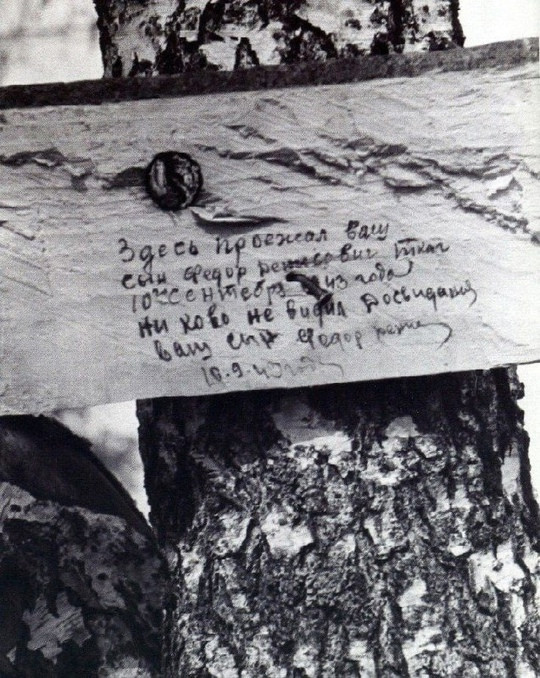 Здесь проежал ваш
сын Федор Ткач
10 сентебр 43 года
ни ково не видил Досвидания
ваш сын Федор
10.9.43 году